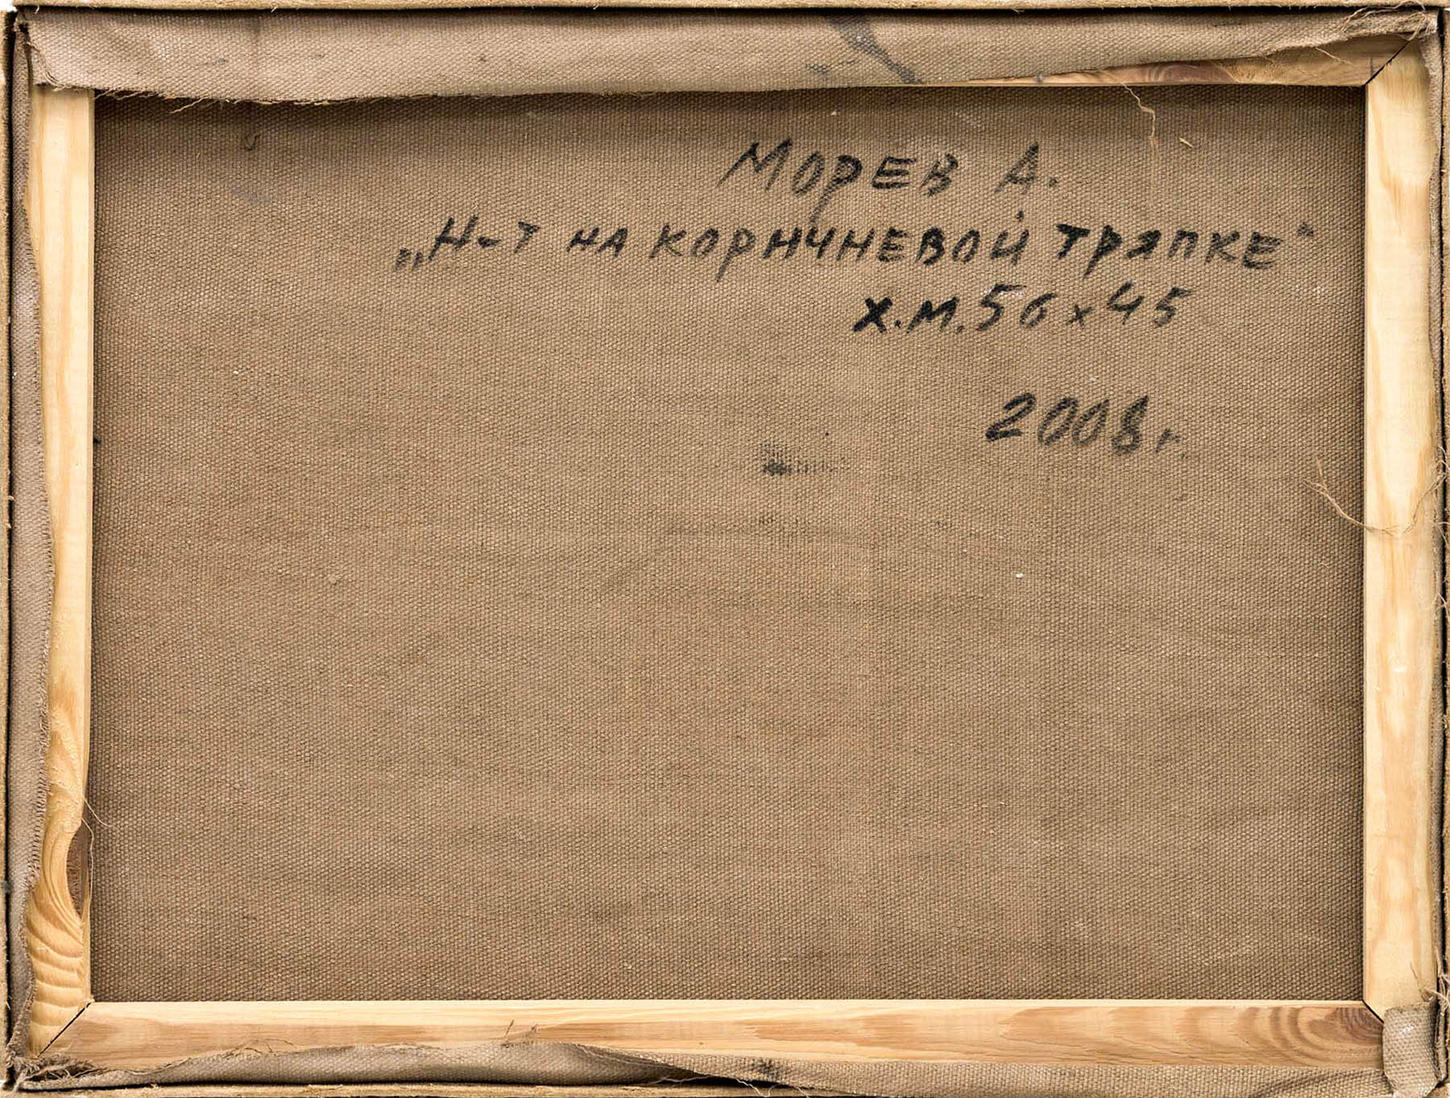 Морев А.
„Н-т на коричневой тряпке"
х.м. 56x45
2008г.